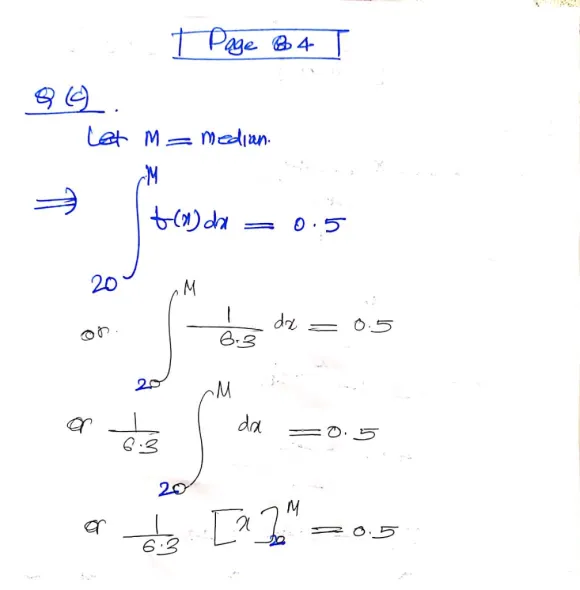 Page 4
Q (c).
Let M = Median.
⇒ ∫_{20}^{M} f(x) dx = 0.5
or ∫_{20}^{M} 1/6.3 dx = 0.5
or 1/6.3 ∫_{20}^{M} dx = 0.5
or 1/6.3 [x]_{20}^{M} = 0.5